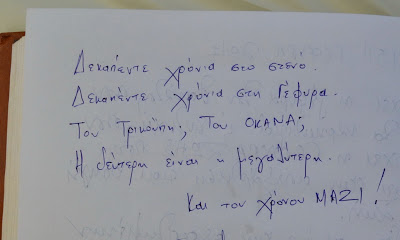 Δεκαπέντε χρόνια στο στενό.
Δεκαπέντε χρόνια στη Γέφυρα.
Του Τρικούπη; Του ΟΚΑΝΑ;
Η δεύτερη είναι η μεγαλύτερη.
Και του χρόνου ΜΑΖΙ!